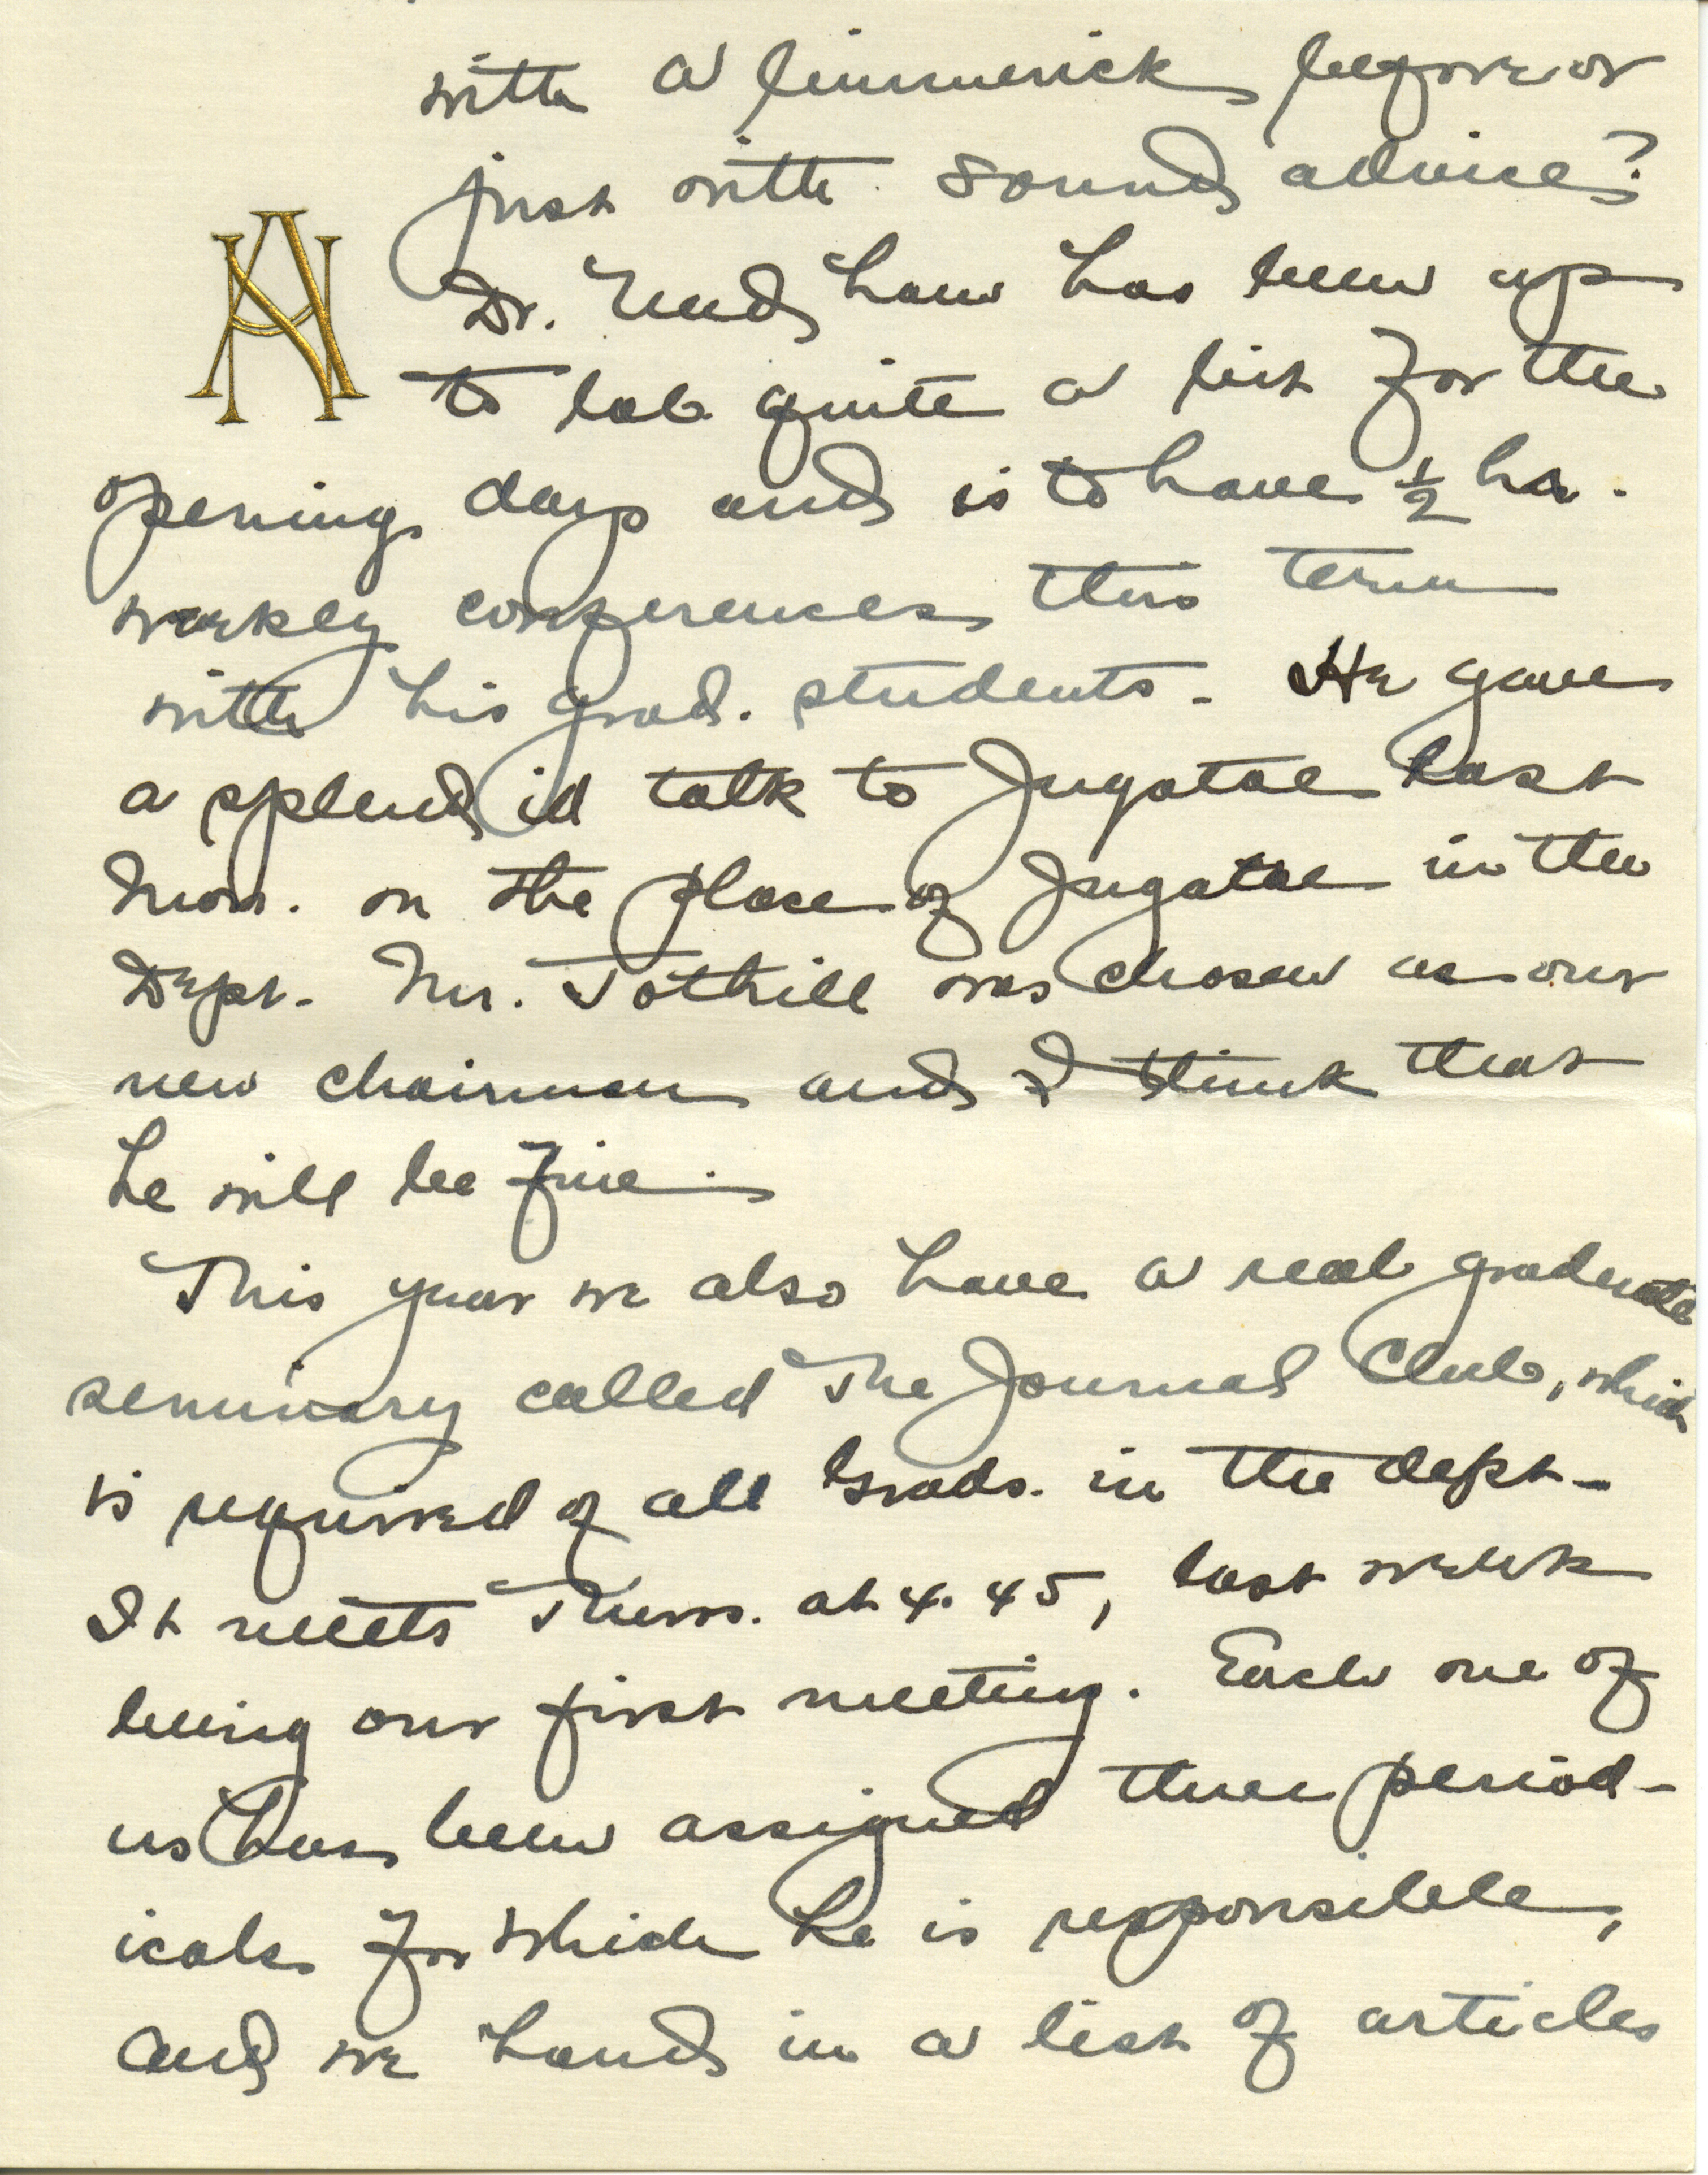 with a limmerick before or
just with sound advice?
Dr. Needham has been up
to lab quite a bit for the
opening days and is to have ½ hr.
weekly conferences this term
with his grad. students. He gave
a splendid talk to Jugatae last
Mon. on the place of Jugatae in the
Dept. Mr. Tothill was chosen as our
new chairman and I think that
he will be fine.
This year we also have a real graduate
seminary called The Journal Club, which
is required of all Grads. in the dept.
It meets Thurs. at 4.45, last week
being our first meeting. Each one of
us has been assigned three period-
icals for which he is responsible,
and we hand in a list of articles